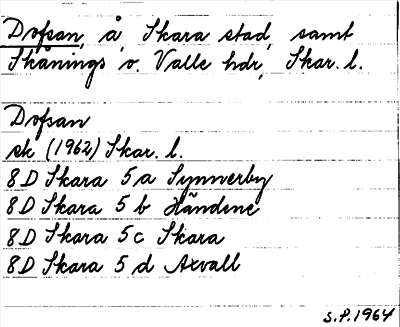 Dofsan, å, Skara stad, samt
Skånings o. Valle hdr, Skar. l.
Dofsan
ek (1962) Skar. l.
8D Skara 5a Synnerby
8D Skara 5b Händene
8D Skara 5c Skara
8D Skara 5d Axvall
S.P. 1964